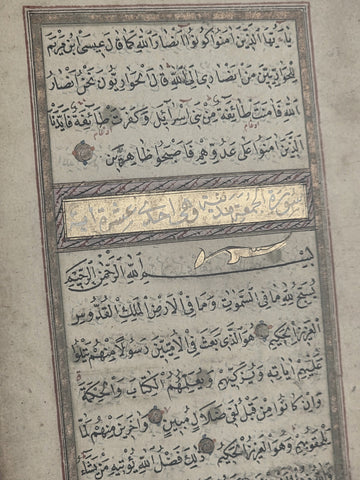 يا ايها الذين امنوا كونوا انصار الله كما قال عيسى بن مريم
للحواريين من انصاري الى الله قال الحواريون نحن انصار
الله فامنت طائفة من بني اسرائيل وكفرت طائفة فايدنا
الذين امنوا على عدوهم فاصبحوا ظاهرين
سورة الجمعة مدنية وهي احد عشرة اية
بسم الله الرحمن الرحيم
يسبح لله ما في السموات وما في الارض الملك القدوس
العزيز الحكيم هو الذي بعث في الاميين رسولا منهم يتلو
عليهم اياته ويزكيهم ويعلمهم الكتاب والحكمة
وان كانوا من قبل لفي ضلال مبين واخرين منهم لما
يلحقوا بهم وهو العزيز الحكيم ذلك فضل الله يؤتيه من يشاء